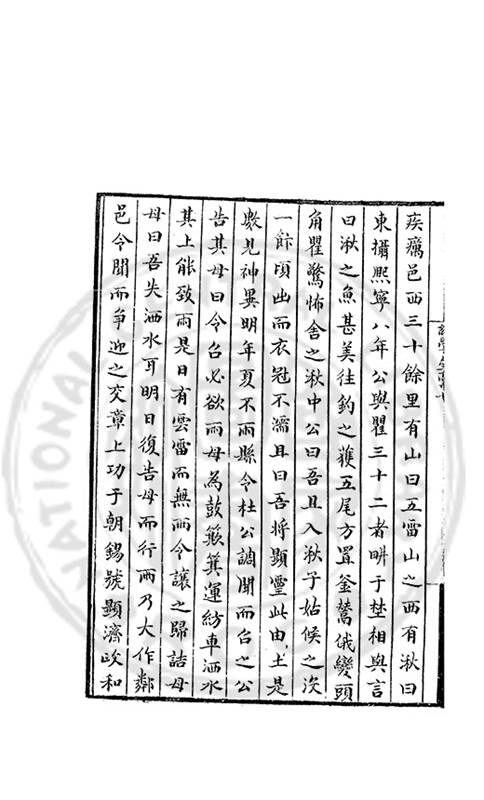 疾癘邑西三十餘里有山曰五雷山之西有湫曰
東攝熙寧八年公與瞿三十二者畊于埜相與言
曰湫之魚甚美往釣之獲五尾方置釜鬵俄變頭
角瞿驚怖舍之湫中公曰吾且入湫子姑候之次
一餉頃出而衣冠不濡且曰吾將顯靈此由土是
數見神異明年夏不雨縣令杜公調聞而召之公
告其母曰令召必欲雨母為鼓簸箕運紡車洒水
其上能致雨是日有雲雷而無雨令讓之歸詰母
母曰吾失洒水耳明日復告母而行雨乃大作鄰
邑令聞而爭迎之交章上功于朝錫號顯濟政和
NATIONAL